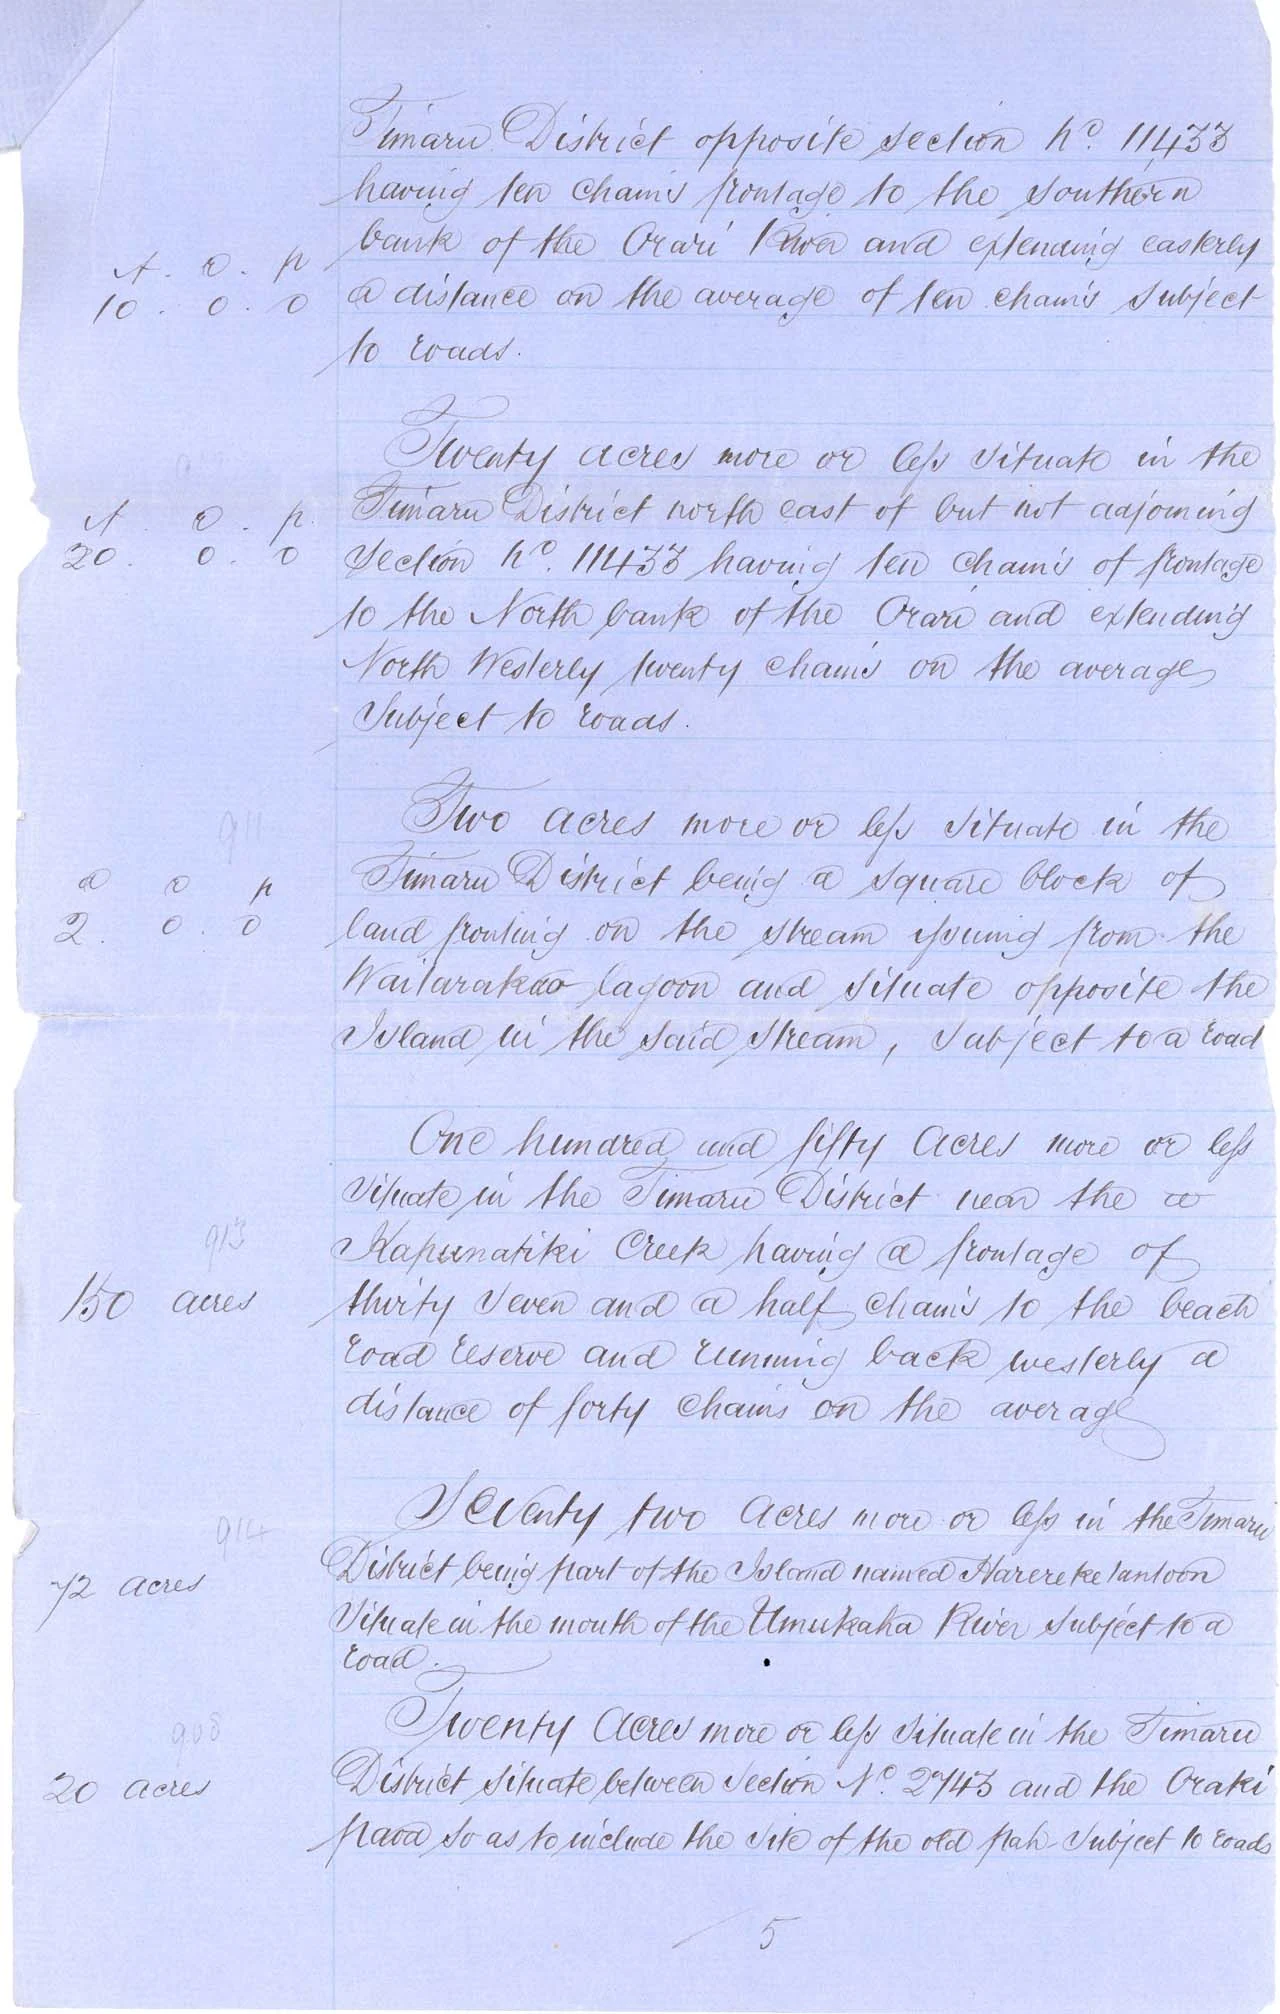 Timaru District opposite section No. 11433
having ten chains frontage to the Southern
bank of the Orari River and extending easterly
A. 0. p
10. 0. 0 a distance on the average of ten chains subject
to roads.
Twenty acres more or less situate in the
A. 0. p. Timaru District north east of but not adjoining
20. 0. 0 Section No. 11433 having ten chains of frontage
to the North bank of the Orari and extending
North Westerly twenty chains on the average
Subject to roads.
911 Two acres more or less situate in the
a 0 p Timaru District being a square block of
2. 0. 0 land fronting on the stream issuing from the
Waitarakao lagoon and situate opposite the
Island in the said stream, subject to a road
One hundred and fifty acres more or less
situate in the Timaru District near the
913 Kapunatiki Creek having a frontage of
150 acres thirty seven and a half chains to the beach
road reserve and running back westerly a
distance of forty chains on the average
914 Seventy two acres more or less in the Timaru
72 acres District being part of the Island named Harereketautoon
Situate in the mouth of the Umukaha River subject to a
road.
908 Twenty Acres more or less situate in the Timaru
20 acres District situate between Section No. 2743 and the Oraki
paoa so as to include the site of the old pah subject to roads
5